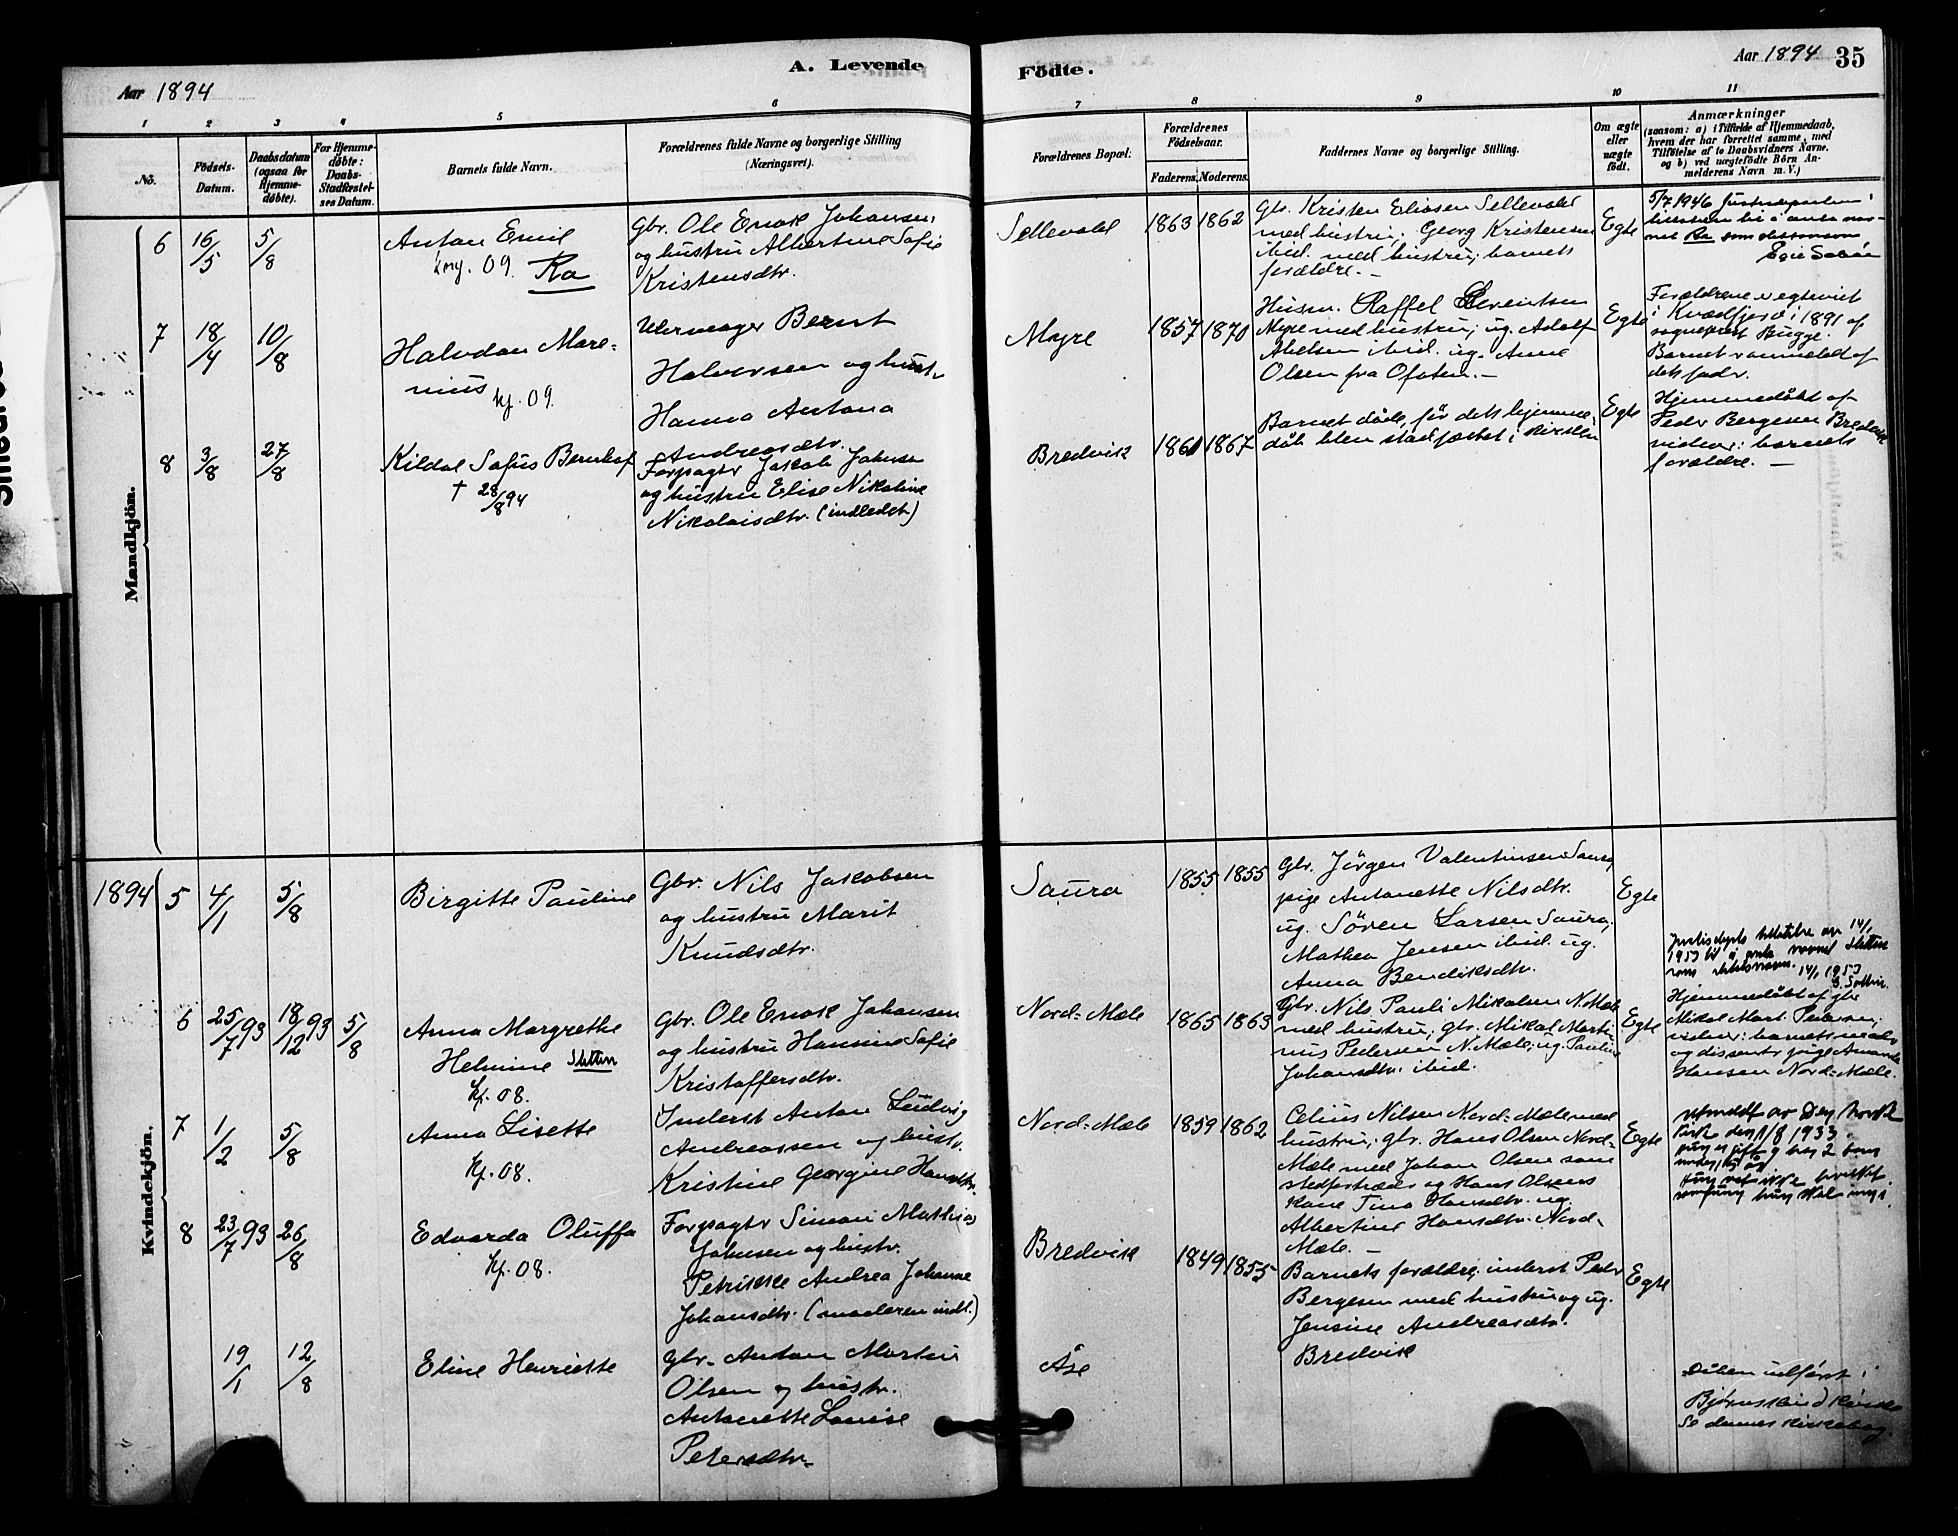 Aar 1894
A. Levende
1 2 3 4 5 6
No.
Födsels-
Datum.
Daabsdatum
(ogsaa for
Hjemme-
døbte).
For Hjemme-
døbte:
Daabs-
Stadfæstel-
ses Datum.
Barnets fulde Navn.
Forældrenes fulde Navne og borgerlige Stilling
(Næringsvei).
Mandkjön.
6 16/5 5/8
Anton Emil
konf. 09. Ra
Gbr. Ole Enok Johansen
og hustru Albertine Sofie
Kristensdtr.
7 18/4 10/8
Halvdan Mare-
nius
kf. 09.
Bernt
Halvorsen og hustr.
Hanna Antona
Andreasdtr.
8 3/8 27/8
Kildal Sofus Bernhof
† 28/8 94
Forpagter Jakob Johnsen
og hustru Elise Nikoline
Nikolaisdtr. (indledet)
Kvindekjön.
1894 5 4/1 5/8
Birgitte Pauline
Gbr. Nils Jakobsen
og hustru Marit
Knudsdtr.
6 25/7 93 18/12 93 5/8
Anna Margrethe
Helmine Sletten
Kf. 08.
Gbr. Ole Enok Johansen
og hustru Hansine Sofie
Kristoffersdtr.
7 1/2 5/8
Anna Lisette
Kf. 08.
Inderst Anton Ludvig
Andreassen og hustr.
Kristine Georgine Hansdtr.
8 23/7 93 26/8
Edvarda Oluffa
Kf. 08.
Forpagter Simon Mathias
Johnsen og hustr.
Petrikke Andrea Johanne
Johansdtr. (moderen indl.)
19/1 12/8
Eline Henriette
Gbr. Anton Martin
Olsen og hustr.
Antonette Lovise
Petersdtr.
Födte.
Aar 1894 35
7 8 9 10 11
Forældrenes Bopæl:
Forældrenes
Födselsaar.
Faderens. Moderens.
Faddernes Navne og borgerlige Stilling.
Om ægte
eller
uægte
født.
Anmærkninger
(saasom: a) i Tilfælde af Hjemmedaab,
hvem der har forrettet samme, med
Tilföielse af to Daabsvidners Navne,
og b) ved uægtefödte Börn An-
melderens Navn m. V.)
Sellevold 1863 1862
Gbr. Kristen Eliasen Sellevold
med hustru; Georg Kristensen
ibid. med hustru; barnets
forældre. —
Egte
5/7 1946
Ra som slektsnavn
Myre 1857 1870
Husm. Raffel Sivertsen
Myre med hustru; ug. Adolf
Abelsen ibid. ug. Anne
Olsen fra Ofoten. —
Egte
Forældrene egteviet
i Kvædfjord i 1891 af
sogneprest Bugge.
Barnet anmeldt af
dets fader.
Bredvik 1861 1867
Barnet døde, før dets hjemme-
dåb blev stadfæstet i kirken
Egte
Hjemmedøbt af
Peder Bergesen Bredvik
vidner: barnets
forældre. —
Saura 1855 1855
Gbr. Jörgen Valentinsen Saura,
pige Antonette Nilsdtr.
ug. Sören Larsen Saura,
Mathea Jensen ibid. ug.
Anna Bendiksdtr.
Egte
Nord-Mæle 1865 1863
Gbr. Nils Pauli Mikalsen N. Mæle
med hustru; gbr. Mikal Marti-
nus Pedersen N. Mæle; ug. Pauline
Johansdtr. ibid.
Egte
14/1
1953 til å anta navnet Sletten
som slektsnavn. 14/1 1953
Hjemmedøbt af gbr
Mikal Mart. Pedersen;
vidner: barnets moder
og dissenter pige Amanda
Hansen Nord-Mæle.
Nord-Mæle 1859 1862
Celius Nilsen Nord-Mæle med
hustru; gbr. Hans Olsen Nord-
Mæle med Johan Olsen som
stedfortræder og Hans Olsens
kone Tina Hansdtr. ug.
Albertine Hansdtr. Nord-
Mæle. —
Egte
Utmeldt av Den norske
Kirke den 1/8 1933.
Bredvik 1849 1855
Barnets forældre, inderst Peder
Bergesen med hustru og ug.
Jensine Andreasdtr.
Bredvik
Egte
Åse
Dåben udført i
Bjørnskind kirke
Se dennes kirkebog.